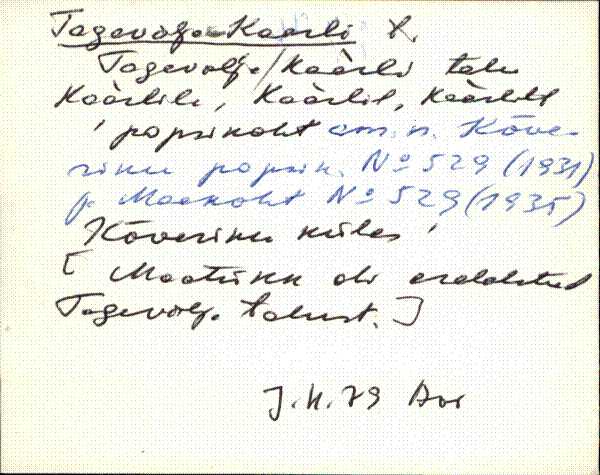 Tagevälja-Kaarli t.
Tagevälja/Kaarli talu
Kaarlile, Kaarlil, Kaarlilt
' popsikoht am. n. Kõve-
riku popsik. № 529 (1931)
p. Maakoht № 529 (1935)
Kõveriku külas '
[ Maatükk oli eraldatud
Tagevälja talust. ]
J. K. 79